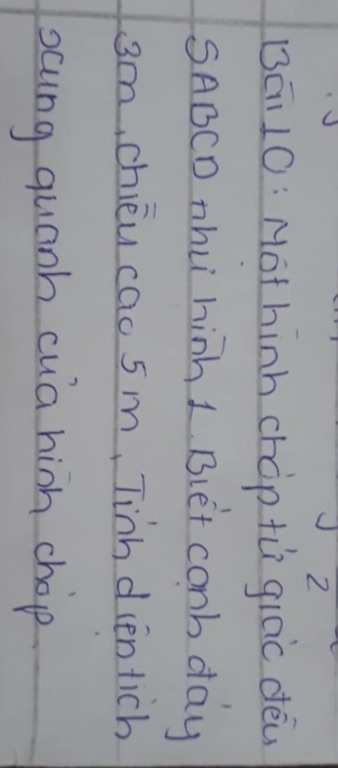 Bài 10: Một hình chóp tứ giác đều
SABCD như hình 1. Biết cạnh đáy
3m, chiều cao 5 m, Tính diện tích
xung quanh của hình chóp
2